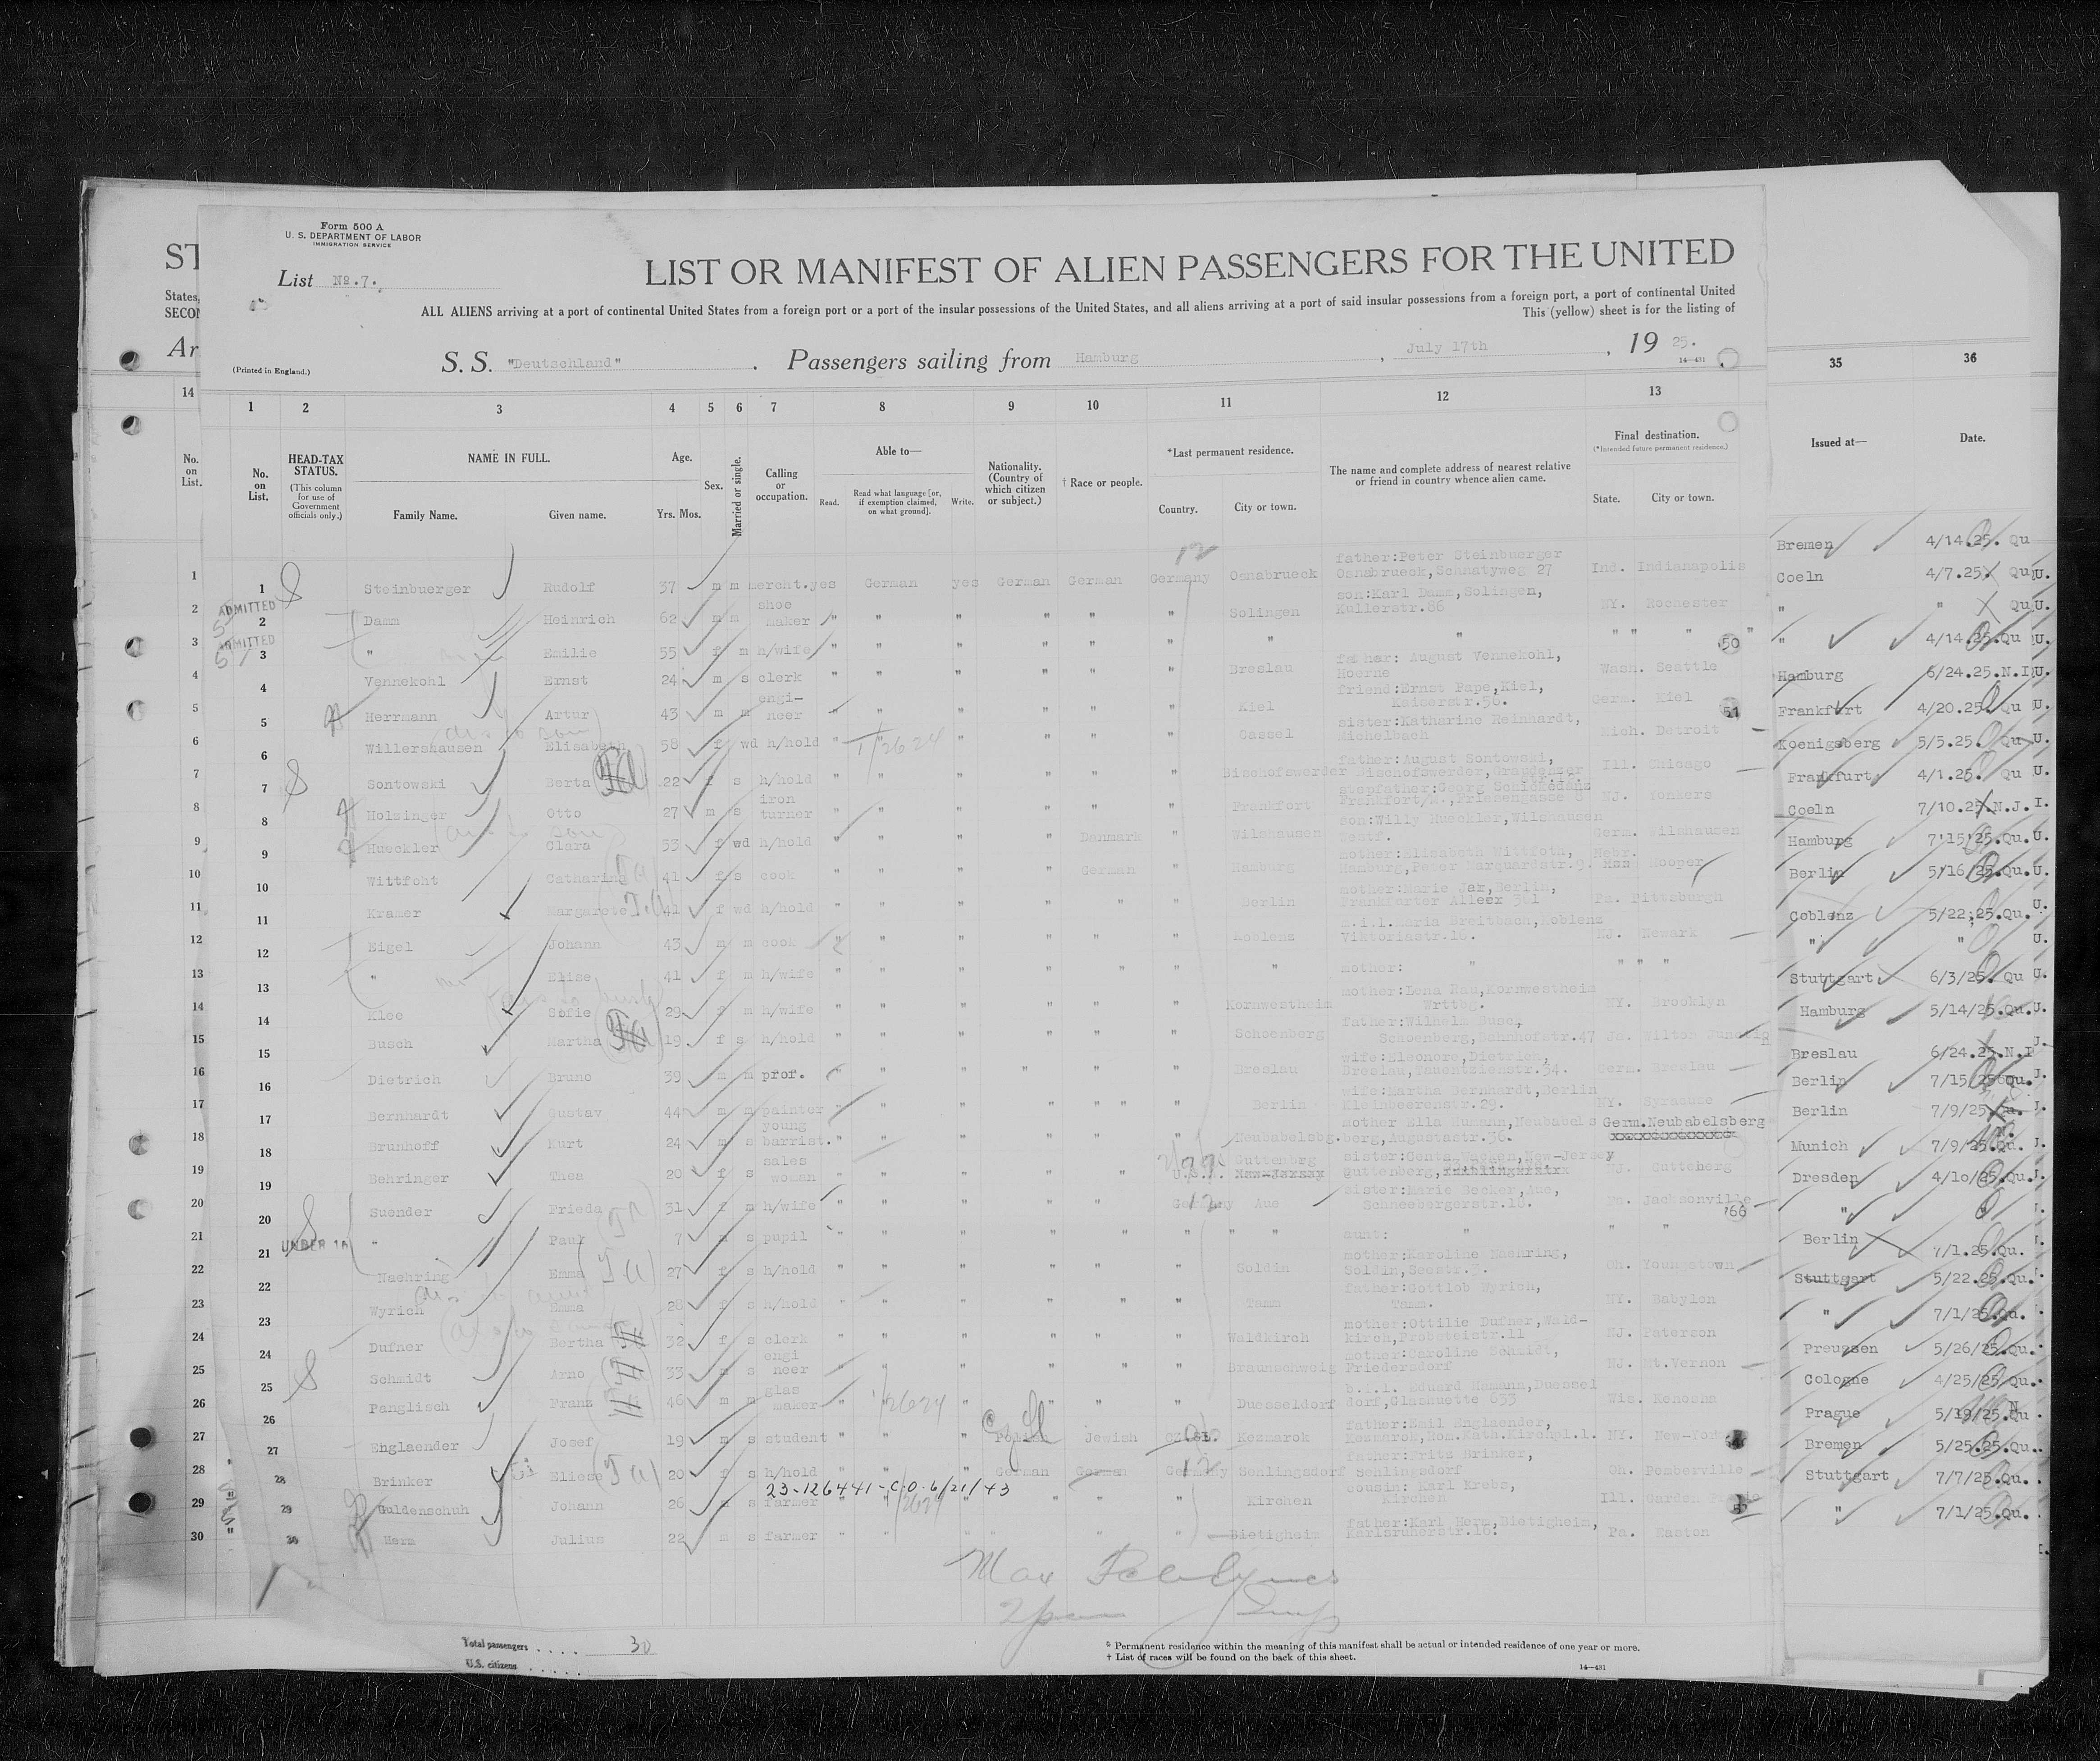 Form 500 A
U. S. DEPARTMENT OF LABOR
IMMIGRATION SERVICE
List No.7.
LIST OR MANIFEST OF ALIEN PASSENGERS FOR THE UNITED
ALL ALIENS arriving at a port of continental United States from a foreign port or a port of the insular possessions of the United States, and all aliens arriving at a port of said insular possessions from a foreign port, a port of continental United
This (yellow) sheet is for the listing of
ST
States,
SECON
Ar
(Printed in England.)
S. S. "Deutschland". Passengers sailing from Hamburg, July 17th, 19 25.
14—431
14 1 2 3 4 5 6 7 8 9 10 11 12 13 35 36
No. on List.
No. on List.
HEAD-TAX STATUS.
(This column for use of Government officials only.)
NAME IN FULL.
Family Name. Given name.
Age.
Yrs. Mos.
Sex.
Married or single.
Calling or occupation.
Able to—
Read. Read what language [or, if exemption claimed, on what ground]. Write.
Nationality. (Country of which citizen or subject.)
† Race or people.
*Last permanent residence.
Country. City or town.
The name and complete address of nearest relative or friend in country whence alien came.
Final destination.
(*Intended future permanent residence.)
State. City or town.
Issued at— Date.
1 Steinbuerger Rudolf 37 m m mercht. yes German yes German German Germany Osnabrueck father:Peter Steinbuerger Osnabrueck,Schnatyweg 27 Ind. Indianapolis
ADMITTED
2 Damm Heinrich 62 m m shoe maker " " " " " " Solingen son:Karl Damm,Solingen, Kullerstr.86 NY. Rochester
ADMITTED
3 " Emilie 55 f m h/wife " " " " " " " " " " " "
50
4 Vennekohl Ernst 24 m s clerk " " " " " " Breslau father: August Vennekohl, Hoerne Wash. Seattle
5 Herrmann Artur 43 m m engi- neer " " " " " " Kiel friend:Ernst Pape,Kiel, Kaiserstr.56. Germ. Kiel
51
6 Willershausen Elisabeth 58 f wd h/hold " " " " " Cassel sister:Katharine Reinhardt, Michelbach Mich. Detroit
7 Sontowski Berta 22 f s h/hold " " " " " " Bischofswerder father:August Sontowski, Bischofswerder, Ill. Chicago
8 Holzinger Otto 27 m s iron turner " " " " " " Frankfort stepfather:Georg NJ. Yonkers
9 Hueckler Clara 53 f wd h/hold " " " " Danmark " Wilshausen son:Willy Hueckler,Wilshausen Westf. Germ. Wilshausen
10 Wittfoht Catharine 41 f s cook " " " " German " Hamburg mother:Elisabeth Wittfoth, Hamburg,Peter Marquardstr.9. Nebr. Hooper
11 Kramer Margarete 41 f wd h/hold " " " " " " Berlin mother:Marie Jax,Berlin, Frankforter Alleex 361 Pa. Pittsburgh
12 Eigel Johann 43 m m cook " " " " " " Koblenz m.i.l.Maria Breitbach,Koblenz Viktoriastr.16. NJ. Newark
13 " Elise 41 f m h/wife " " " " " " " mother: " " " "
14 Klee Sofie 29 f m h/wife " " " " " " Kornwestheim mother:Lena Rau,Kornwestheim Wrttbg. NY. Brooklyn
15 Busch Martha 19 f s h/hold " " " " " " Schoenberg father:Wilhelm Busc, Schoenberg,Bahnhofstr.47
16 Dietrich Bruno 39 m m prof. " " " " " " Breslau wife:Eleonore,Dietrich, Breslau,Tauentzienstr.34. Germ. Breslau
17 Bernhardt Gustav 44 m m painter " " " " " " Berlin wife:Martha Bernhardt,Berlin Kleinbeerenstr.29. NY. Syracuse
18 Brunhoff Kurt 24 m s young barrist. " " " " " " Neubabelsbg. mother Ella Humann,Neubabels berg,Augustastr.36. Germ.Neubabelsberg
xxxxxxxxxxxxxx
19 Behringer Thea 20 f s sales woman " " " " " U.S. Guttenbrg sister:Centa Wachen,New-Jersey guttenberg, NJ. Gutteberg
20 Suender Frieda 31 f m h/wife " " " " " Germany Aue sister:Marie Becker,Aue, Schneebergerstr.16. Jacksonville
66
UNDER 16
21 " Paul 7 m s pupil " " " " " " " " aunt: " " "
22 Naehring Emma 27 f s h/hold " " " " " " Soldin mother:Karoline Naehring, Soldin,Seestr.3. Oh. Youngstown
23 Wyrich Emma 28 f s h/hold " " " " " " Tamm father:Gottlob Wyrich, Tamm. NY. Babylon
24 Dufner Bertha 32 f s clerk " " " " " " Waldkirch mother:Ottilie Dufner,Wald- kirch,Probsteistr.11 NJ. Paterson
25 Schmidt Arno 33 m s engi neer " " " " " " Braunschweig mother:Caroline Schmidt, Friedersdorf NJ. Mt.Vernon
26 Panglisch Franz 46 m m glas maker " " " " " Duesseldorf b.i.l. Eduard Hamann,Duessel dorf,Glashuette 653 Wis. Kenosha
27 Englaender Josef 19 m s student " " " Polish Jewish Kesmarok father:Emil Englaender, Kesmarok,Rom.Kath.Kirchpl.1. NY. New-York
28 Brinker Eliese 20 f s h/hold " " " German German Germany Sehlingsdorf father:Fritz Brinker, Sehlingsdorf Oh. Pemberville
23-126441-C.O. 6/21/43
29 Guldenschuh Johann 26 m s farmer " " " " " Kirchen cousin: Karl Krebs, Kirchen Ill. Garden
30 Herm Julius 22 m s farmer " " " " " " Bietigheim father:Karl Herm,Bietigheim, Karlsruherstr.16. Pa. Easton
Bremen 4/14.25. Qu
Coeln 4/7.25. Qu
" " Qu
" 4/14.25.Qu
Hamburg 6/24.25.N.I
Frankfurt 4/20.25. Qu
Koenigsberg 5/5.25. Qu
Frankfurt 4/1.25. Qu
Coeln 7/10.25.N.J.
Hamburg 7/15/25.Qu.
Berlin 5/16/25.Qu.
Coblenz 5/22;25.Qu.
" "
Stuttgart 6/3/25. Qu
Hamburg 5/14/25.Qu.
Breslau 6/24.25.N.I
Berlin 7/15/25 Qu.
Berlin 7/9/25
Munich 7/9/25.Qu.
Dresden 4/10/25.Qu.
"
Berlin 7/1.25.Qu.
Stuttgart 5/22.25.Qu.
" 7/1/25.Qu.
Preussen 5/26/25.Qu.
Cologne 4/25/25 Qu.
Prague 5/19/25.Qu.
Bremen 5/25.25.Qu.
Stuttgart 7/7/25.Qu.
" 7/1/25.Qu.
Total passengers . . . . 30
U.S. citizens . . . . .
* Permanent residence within the meaning of this manifest shall be actual or intended residence of one year or more.
† List of races will be found on the back of this sheet.
14—431